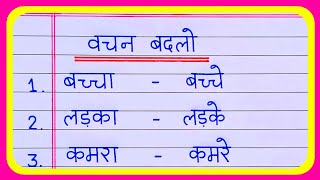 वचन बदलो
1. बच्चा - बच्चे
2. लड़का - लड़के
3. कमरा - कमरे